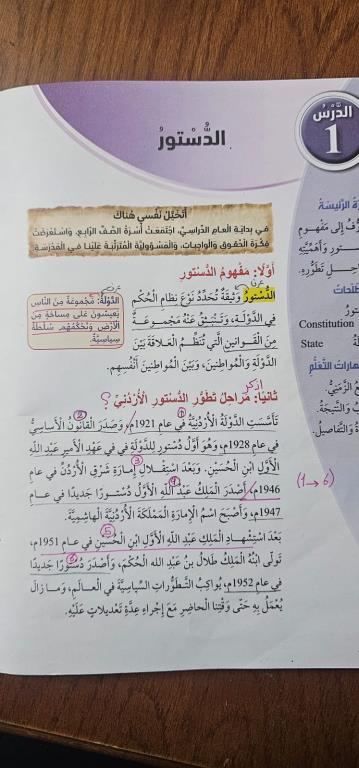 الدَّرْسُ
1
الدُّسْتورُ
أَتَخَيَّلُ نَفْسي هُناكَ
في بدايَةِ العامِ الدِّراسِيِّ، اجْتَمَعَتْ أُسْرَةُ الصَّفِّ الرّابِعِ، وَاسْتَعْرَضَتْ
فِكْرَةَ الْحُقوقِ وَالْواجِباتِ، وَالْمَسْؤولِيَّةَ الْمُتَرَتِّبَةَ عَلَيْنا في الْمَدْرَسَةِ
أَوَّلًا: مَفْهومُ الدُّسْتورِ
عرّف
الدُّسْتورُ وَثيقَةٌ تُحَدِّدُ نَوْعَ نِظامِ الْحُكْمِ
في الدَّوْلَةِ، وَتَنْبَثِقُ عَنْهُ مَجْموعَةٌ
مِنَ الْقَوانينِ الَّتي تُنَظِّمُ الْعَلاقَةَ بَيْنَ
الدَّوْلَةِ وَالْمُواطِنينَ، وَبَيْنَ الْمُواطِنينَ أَنْفُسِهِمْ.
عرّف
الدَّوْلَةُ: مَجْموعَةٌ مِنَ النّاسِ
يَعيشونَ عَلى مِساحَةٍ مِنَ
الْأَرْضِ وَتَحْكُمُهُمْ سُلْطَةٌ
سِياسِيَّةٌ.
اذكر
ثانِيًا: مَراحِلُ تَطَوُّرِ الدُّسْتورِ الْأُرْدُنِّيِّ ؟
① ②
تَأَسَّسَتِ الدَّوْلَةُ الْأُرْدُنِّيَّةُ في عامِ 1921م، وَصَدَرَ الْقانونُ الْأَساسِيُّ
في عامِ 1928م، وَهُوَ أَوَّلُ دُسْتورٍ لِلدَّوْلَةِ في عَهْدِ الْأَميرِ عَبْدِ اللهِ
③
الْأَوَّلِ ابْنِ الْحُسَيْنِ. وَبَعْدَ اسْتِقْلالِ إِمارَةِ شَرْقِ الْأُرْدُنِّ في عامِ
④
1946م، أَصْدَرَ الْمَلِكُ عَبْدُ اللهِ الْأَوَّلُ دُسْتورًا جَديدًا في عامِ
(1 → 6)
1947م، وَأَصْبَحَ اسْمُ الْإِمارَةِ الْمَمْلَكَةَ الْأُرْدُنِّيَّةَ الْهاشِمِيَّةَ.
⑤
بَعْدَ اسْتِشْهادِ الْمَلِكِ عَبْدِ اللهِ الْأَوَّلِ ابْنِ الْحُسَيْنِ في عامِ 1951م،
⑥
تَوَلّى ابْنُهُ الْمَلِكُ طَلالُ بْنُ عَبْدِ اللهِ الْحُكْمَ، وَأَصْدَرَ دُسْتورًا جَديدًا
في عامِ 1952م، يُواكِبُ التَّطَوُّراتِ السِّياسِيَّةَ في الْعالَمِ، وَما زالَ
يُعْمَلُ بِهِ حَتّى وَقْتِنا الْحاضِرِ مَعَ إِجْراءِ عِدَّةِ تَعْديلاتٍ عَلَيْهِ.
الرَّئيسَةُ
إِلى مَفْهومِ
وَأَهَمِّيَّتِهِ
تَطَوُّرِهِ.
Constitution
State
التَّعَلُّمِ
الزَّمَنِيُّ.
وَالنَّتيجَةُ.
وَالتَّفاصيلُ.